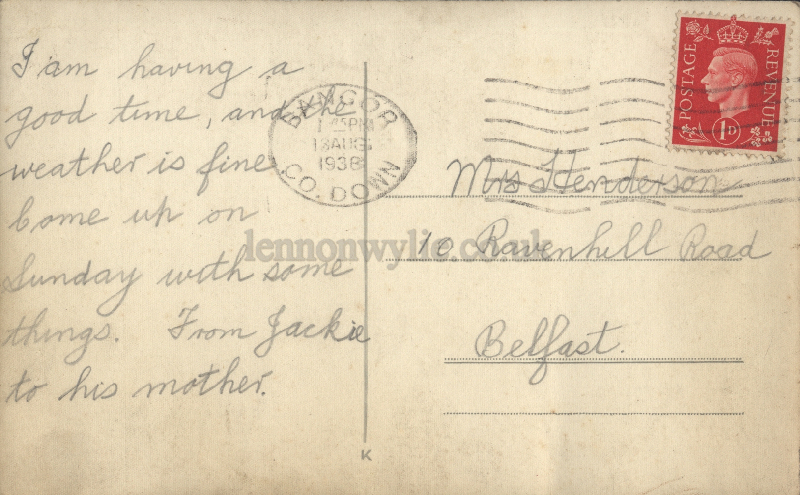 I am having a
good time, and the
weather is fine
Come up on
Sunday with some
things. From Jackie
to his mother.
BANGOR
PM
AUG
1938
CO. DOWN
POSTAGE
REVENUE
1D
Mrs Henderson
10 Ravenhill Road
Belfast.
lennonwylie.co.uk
K